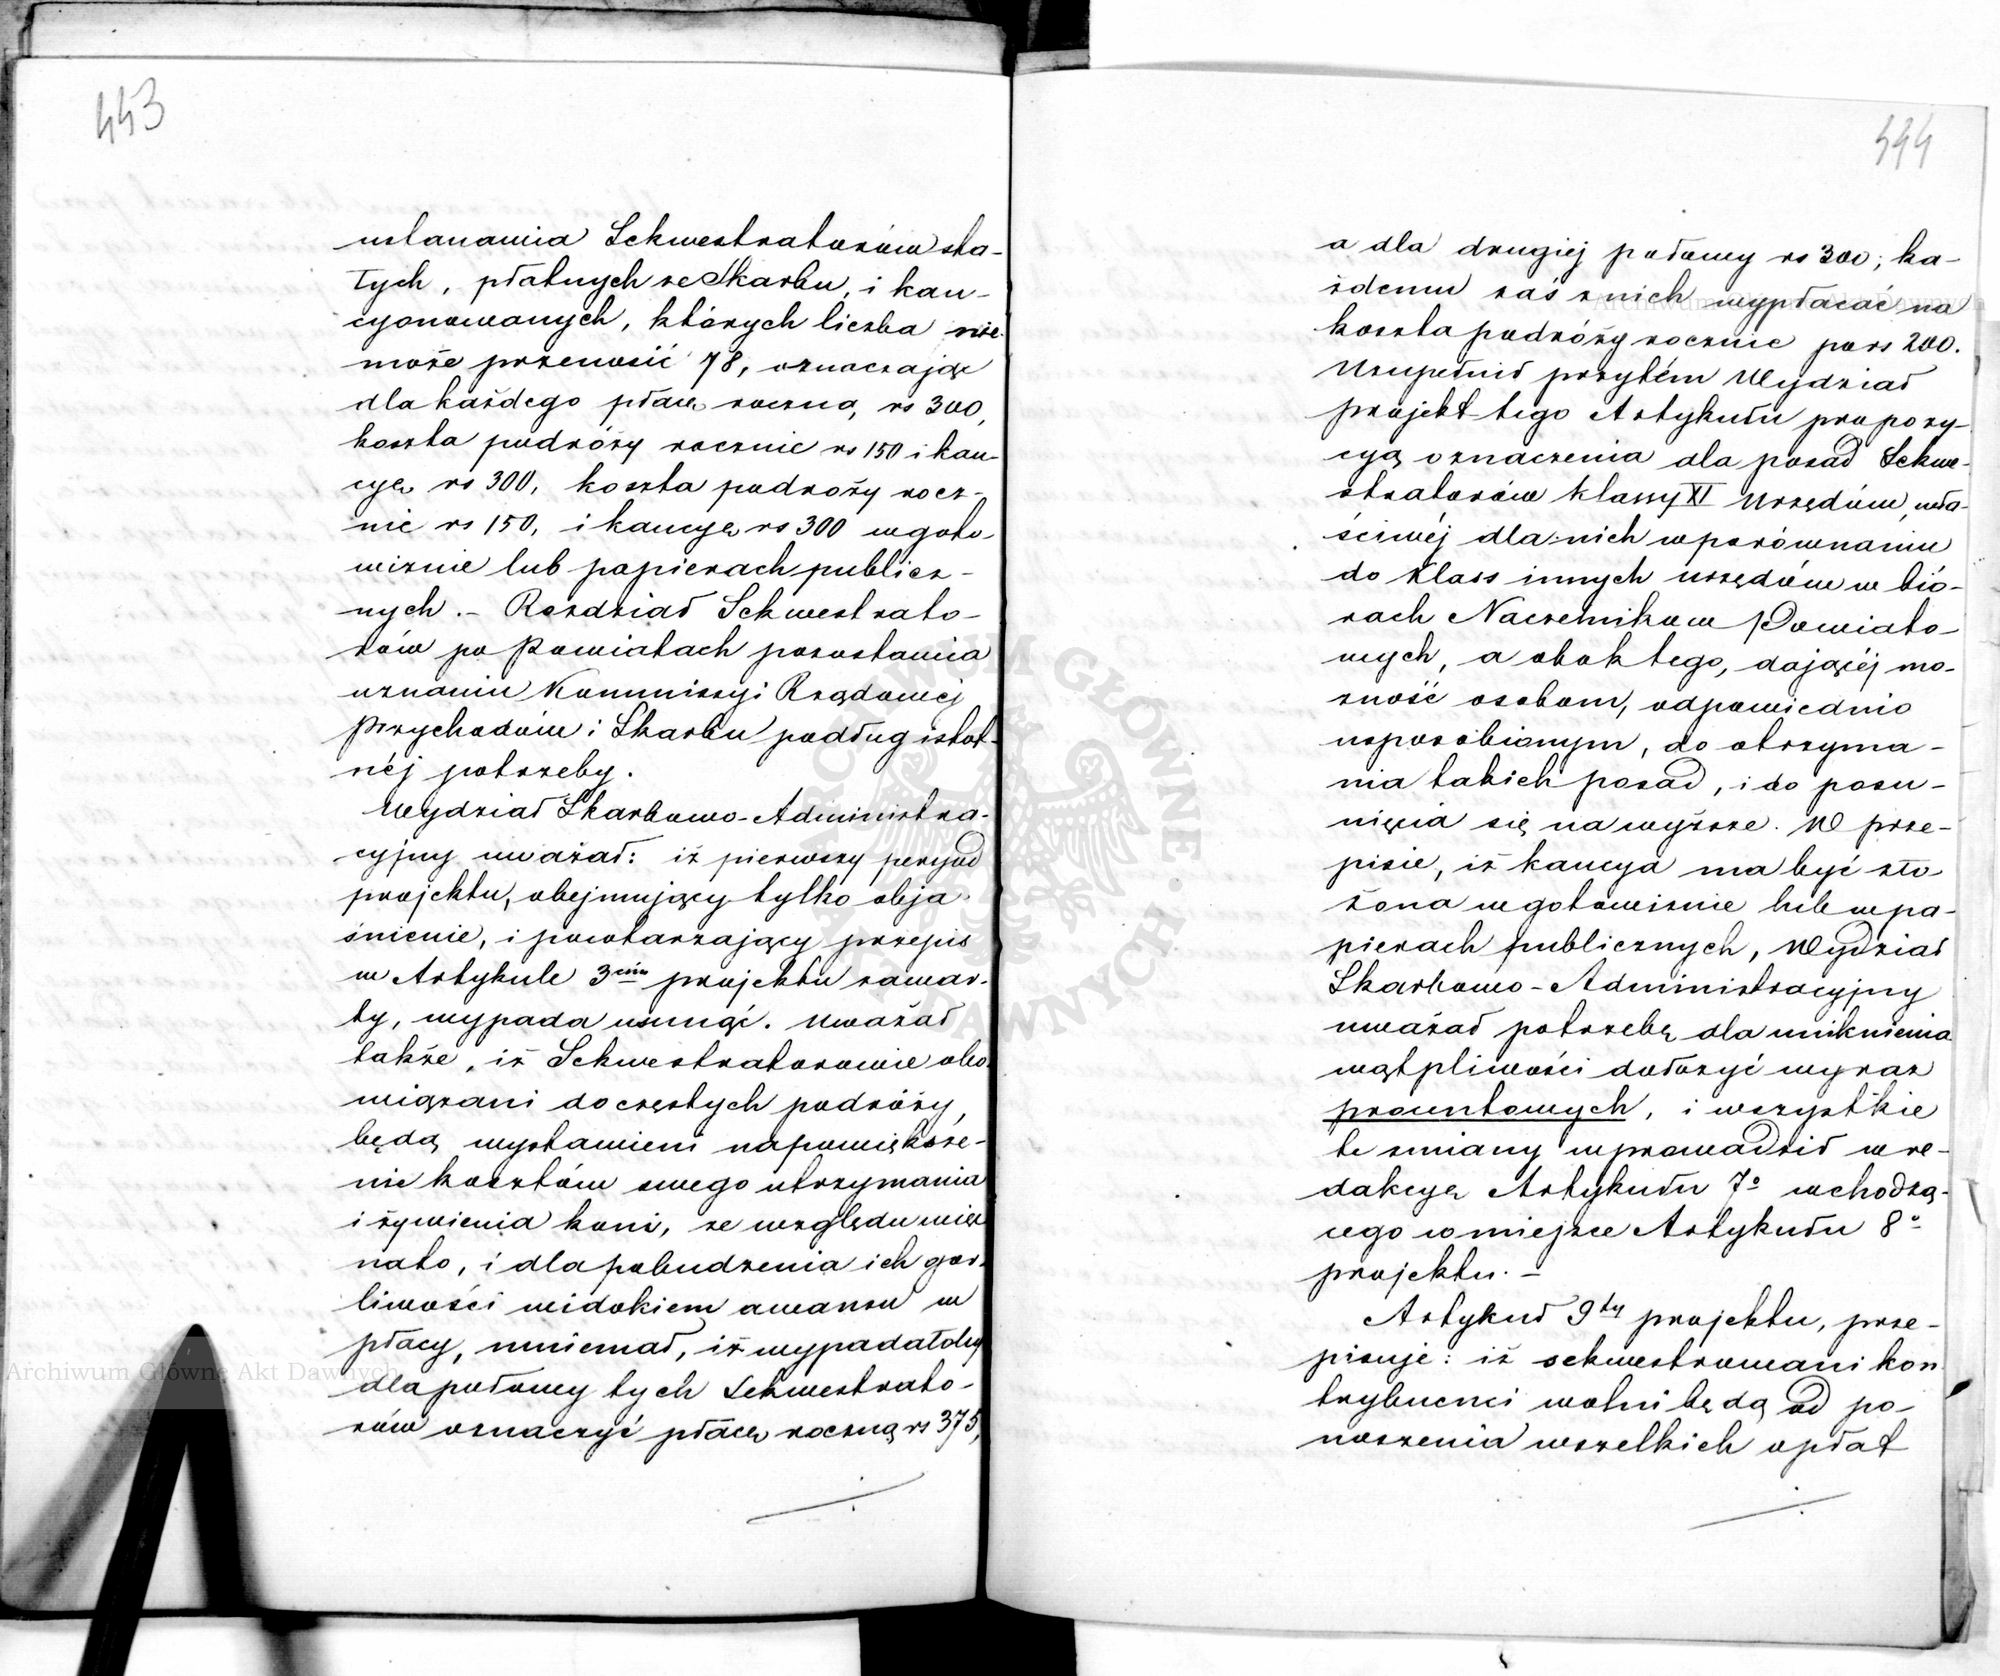 443
ustanawia Sekwestratorów sta-
łych, płatnych ze Skarbu, i kau-
cyonowanych, których liczba nie
może przenosić 78, oznaczając
dla każdego płacę roczną rs 300,
koszta podróży rocznie rs 150 i kau-
cyę rs 300, koszta podroży rocz-
nie rs 150, i kaucyę rs 300 w goto-
wiznie lub papierach publicz-
nych. - Rozdział Sekwestrato-
rów po Powiatach pozostawia
uznaniu Kommissyi Rządowej
Przychodów i Skarbu podług istot-
néj potrzeby.
Wydział Skarbowo-Administra-
cyjny uważał: iż pierwszy peryod
projektu, obejmujący tylko obja-
śnienie, i powtarzający przepis
w Artykule 3cim projektu zawar-
ty, wypada usunąć. Uważał
także, iż Sekwestratorowie obo-
wiązani do częstych podróży,
będą wystawieni na powiększe-
nie kosztów swego utrzymania
i żywienia koni, ze względu więc
na to, i dla pobudzenia ich gor-
liwości widokiem awansu w
płacy, mniemał, iż wypadałoby
dla połowy tych Sekwestrato-
rów oznaczyć płacę roczną rs 375,
444
a dla drugiej połowy rs 300; ka-
żdemu zaś z nich wypłacać na
koszta podróży rocznie po rs 200.
Uzupełnił przytém Wydział
projekt tego Artykułu propozy-
cyą oznaczenia dla posad Sekwe-
stratorów klassy XI Urzędów, wła-
ściwéj dla nich w porównaniu
do klass innych urzędów w bió-
rach Naczelników Powiato-
wych, a obok tego, dającéj mo-
żność osobom, odpowiednio
usposobionym, do otrzyma-
nia takich posad, i do posu-
nięcia się na wyższe. W prze-
pisie, iż kaucya ma być zło-
żona w gotowiznie lub w pa-
pierach publicznych, Wydział
Skarbowo-Administracyjny
uważał potrzebę dla uniknienia
wątpliwości dołożyć wyraz
procentowych, i wszystkie
te zmiany wprowadził w re-
dakcyę Artykułu 7o wchodzą-
cego w miejsce Artykułu 8o
projektu. -
Artykuł 9ty projektu, prze-
pisuje: iż sekwestrowani kon
trybuenci wolni będą od po-
noszenia wszelkich opłat
Archiwum Główne Akt Dawnych
ARCHIWUM GŁÓWNE AKT DAWNYCH
Archiwum Główne Akt Dawnych